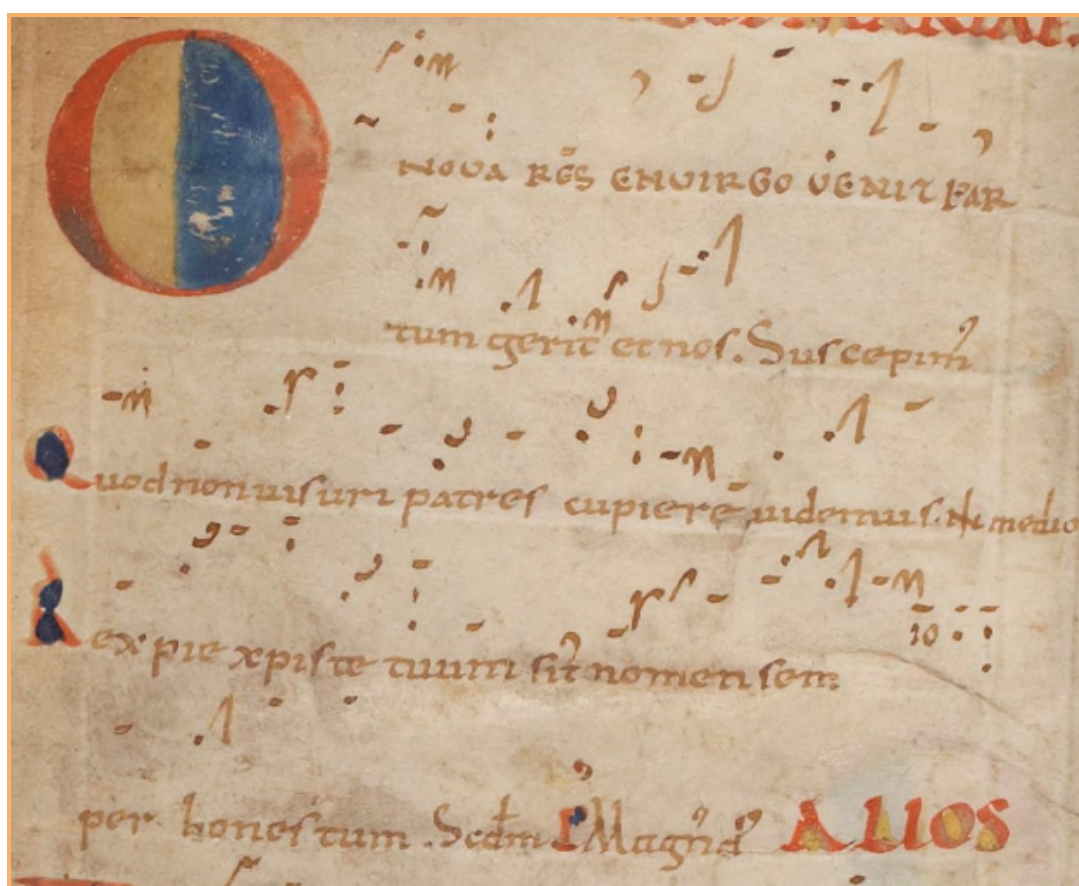 O NOVA RES EN VIRGO VENIT PAR
tum gerit et nos. Suscepim᾽
Quod non uisuri patres cupiere uidemus. In medio
Rex pie xpiste tuum sit nomen sem
per honestum. Scdm Magn᾽ d᾽ ALIOS